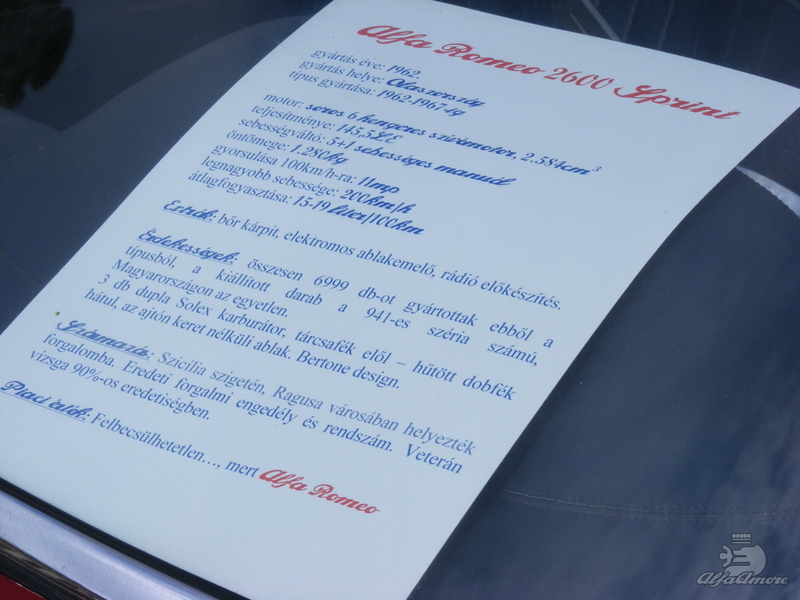 Alfa Romeo 2600 Sprint
gyártás éve: 1962.
gyártás helye: Olaszország
típus gyártása: 1962-1967-ig
motor: soros 6 hengeres szívómotor, 2.584cm³
teljesítménye: 145,5LE
sebességváltó: 5+1 sebességes manuál
öntömege: 1.280kg
gyorsulása 100km/h-ra: 11mp
legnagyobb sebessége: 200km/h
átlagfogyasztása: 15-19 liter/100km
Extrák: bőr kárpit, elektromos ablakemelő, rádió előkészítés.
Érdekességek: összesen 6999 db-ot gyártottak ebből a
típusból, a kiállított darab a 941-es széria számú,
Magyarországon az egyetlen.
3 db dupla Solex karburátor, tárcsafék elől – hűtött dobfék
hátul, az ajtón keret nélküli ablak. Bertone design.
Származás: Szicília szigetén, Ragusa városában helyezték
forgalomba. Eredeti forgalmi engedély és rendszám. Veterán
vizsga 90%-os eredetiségben.
Piaci érték: Felbecsülhetetlen…, mert Alfa Romeo
AlfaAmore